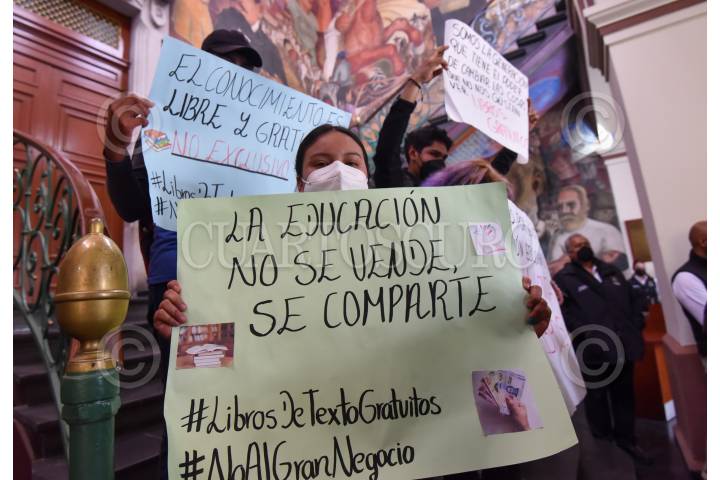 EL CONOCIMIENTO ES
LIBRE Y GRATI
NO EXCLUSIVO
#Libros DeT
SOMOS LA GENERACIÓN
QUE TIENE EL PODER
DE CAMBIAR LAS COSAS
QUE NO NOS
LIBROS
LA EDUCACIÓN
NO SE VENDE,
SE COMPARTE
#LibrosDeTextoGratuitos
#NoAlGranNegocio
CUARTOSCURO